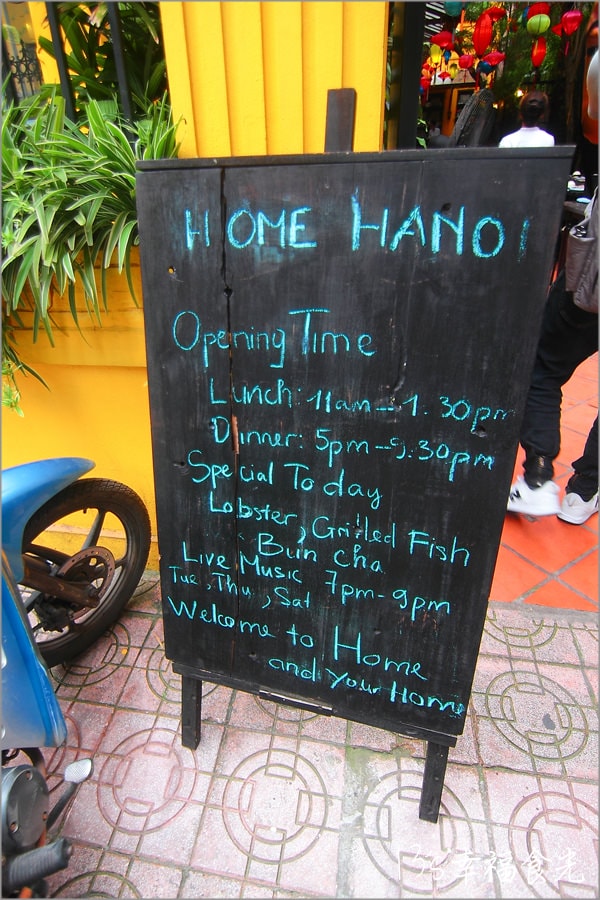 HOME HANOI
Opening Time
Lunch: 11am - 1.30pm
Dinner: 5pm - 9.30pm
Special Today
Lobster, Grilled Fish
Bun Cha
Live Music 7pm-9pm
Tue, Thu, Sat
Welcome to Home
and Your Home
幸福食光